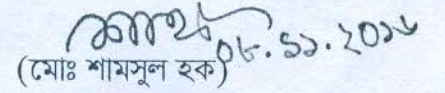 ০৮.১১.২০১৬
(মোঃ শামসুল হক)